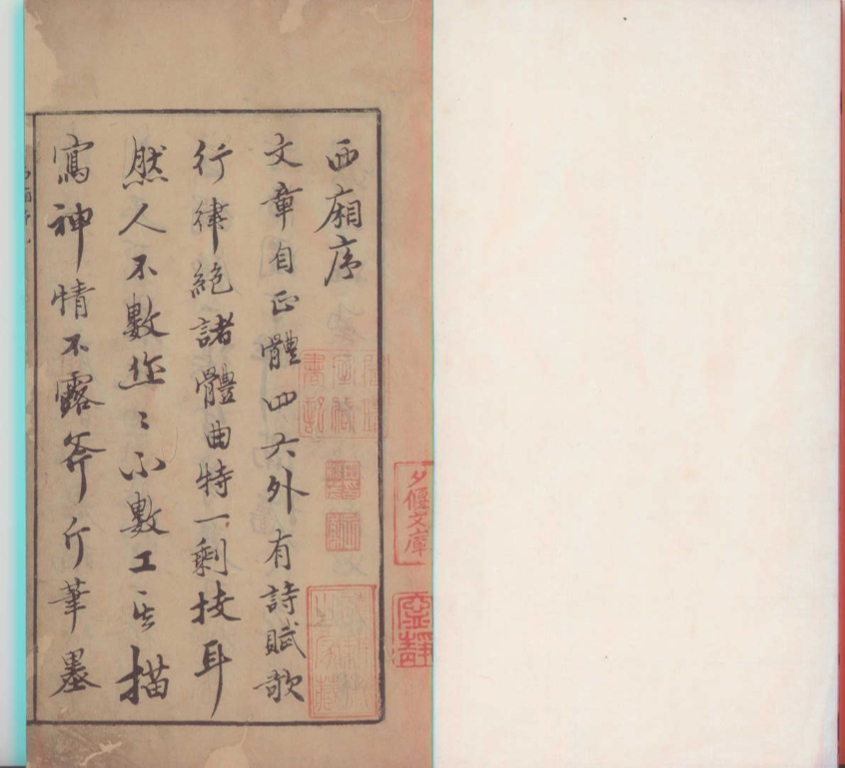 西廂序
文章自正體四六外有詩賦歌
行律絕諸體曲特一剩技耳
然人不數作〻不數工其描
寫神情不露斧斤筆墨
夕偃文庫
虛靜